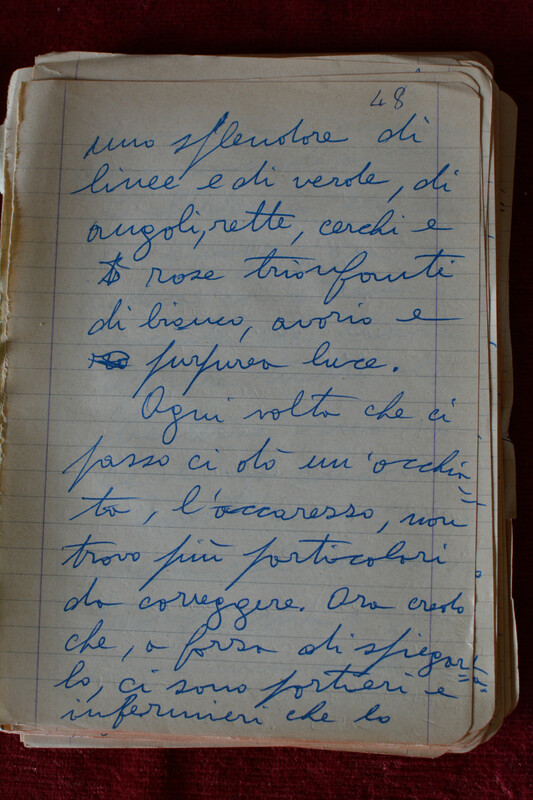 48
uno splendore di
linee e di verde, di
angoli, rette, cerchi e
rose trionfanti
di bianco, avorio e
purpurea luce.
Ogni volta che ci
passo ci dò un'occhia=
ta, l'accarezzo, non
trovo più particolari
da correggere. Ora credo
che, a forza di spiegar=
lo, ci sono portieri e
infermieri che lo